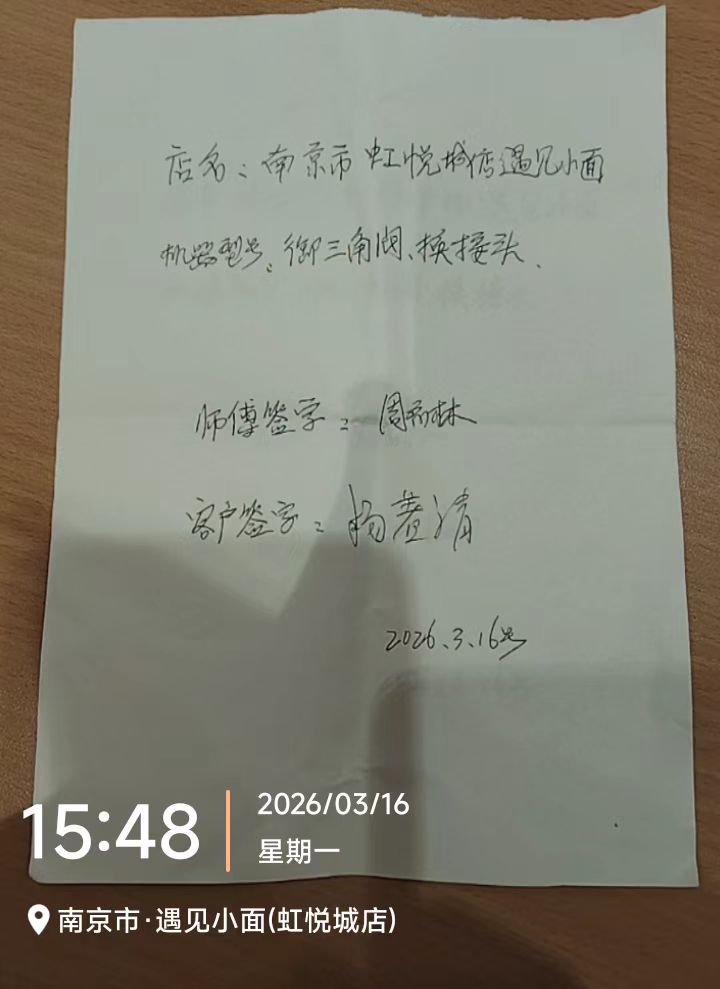 店名：南京市虹悦城店遇见小面
机器型号、御三角阀、换接头、
师傅签字：周林
客户签字：杨清
2026.3.16号
15:48
2026/03/16
星期一
南京市·遇见小面(虹悦城店)